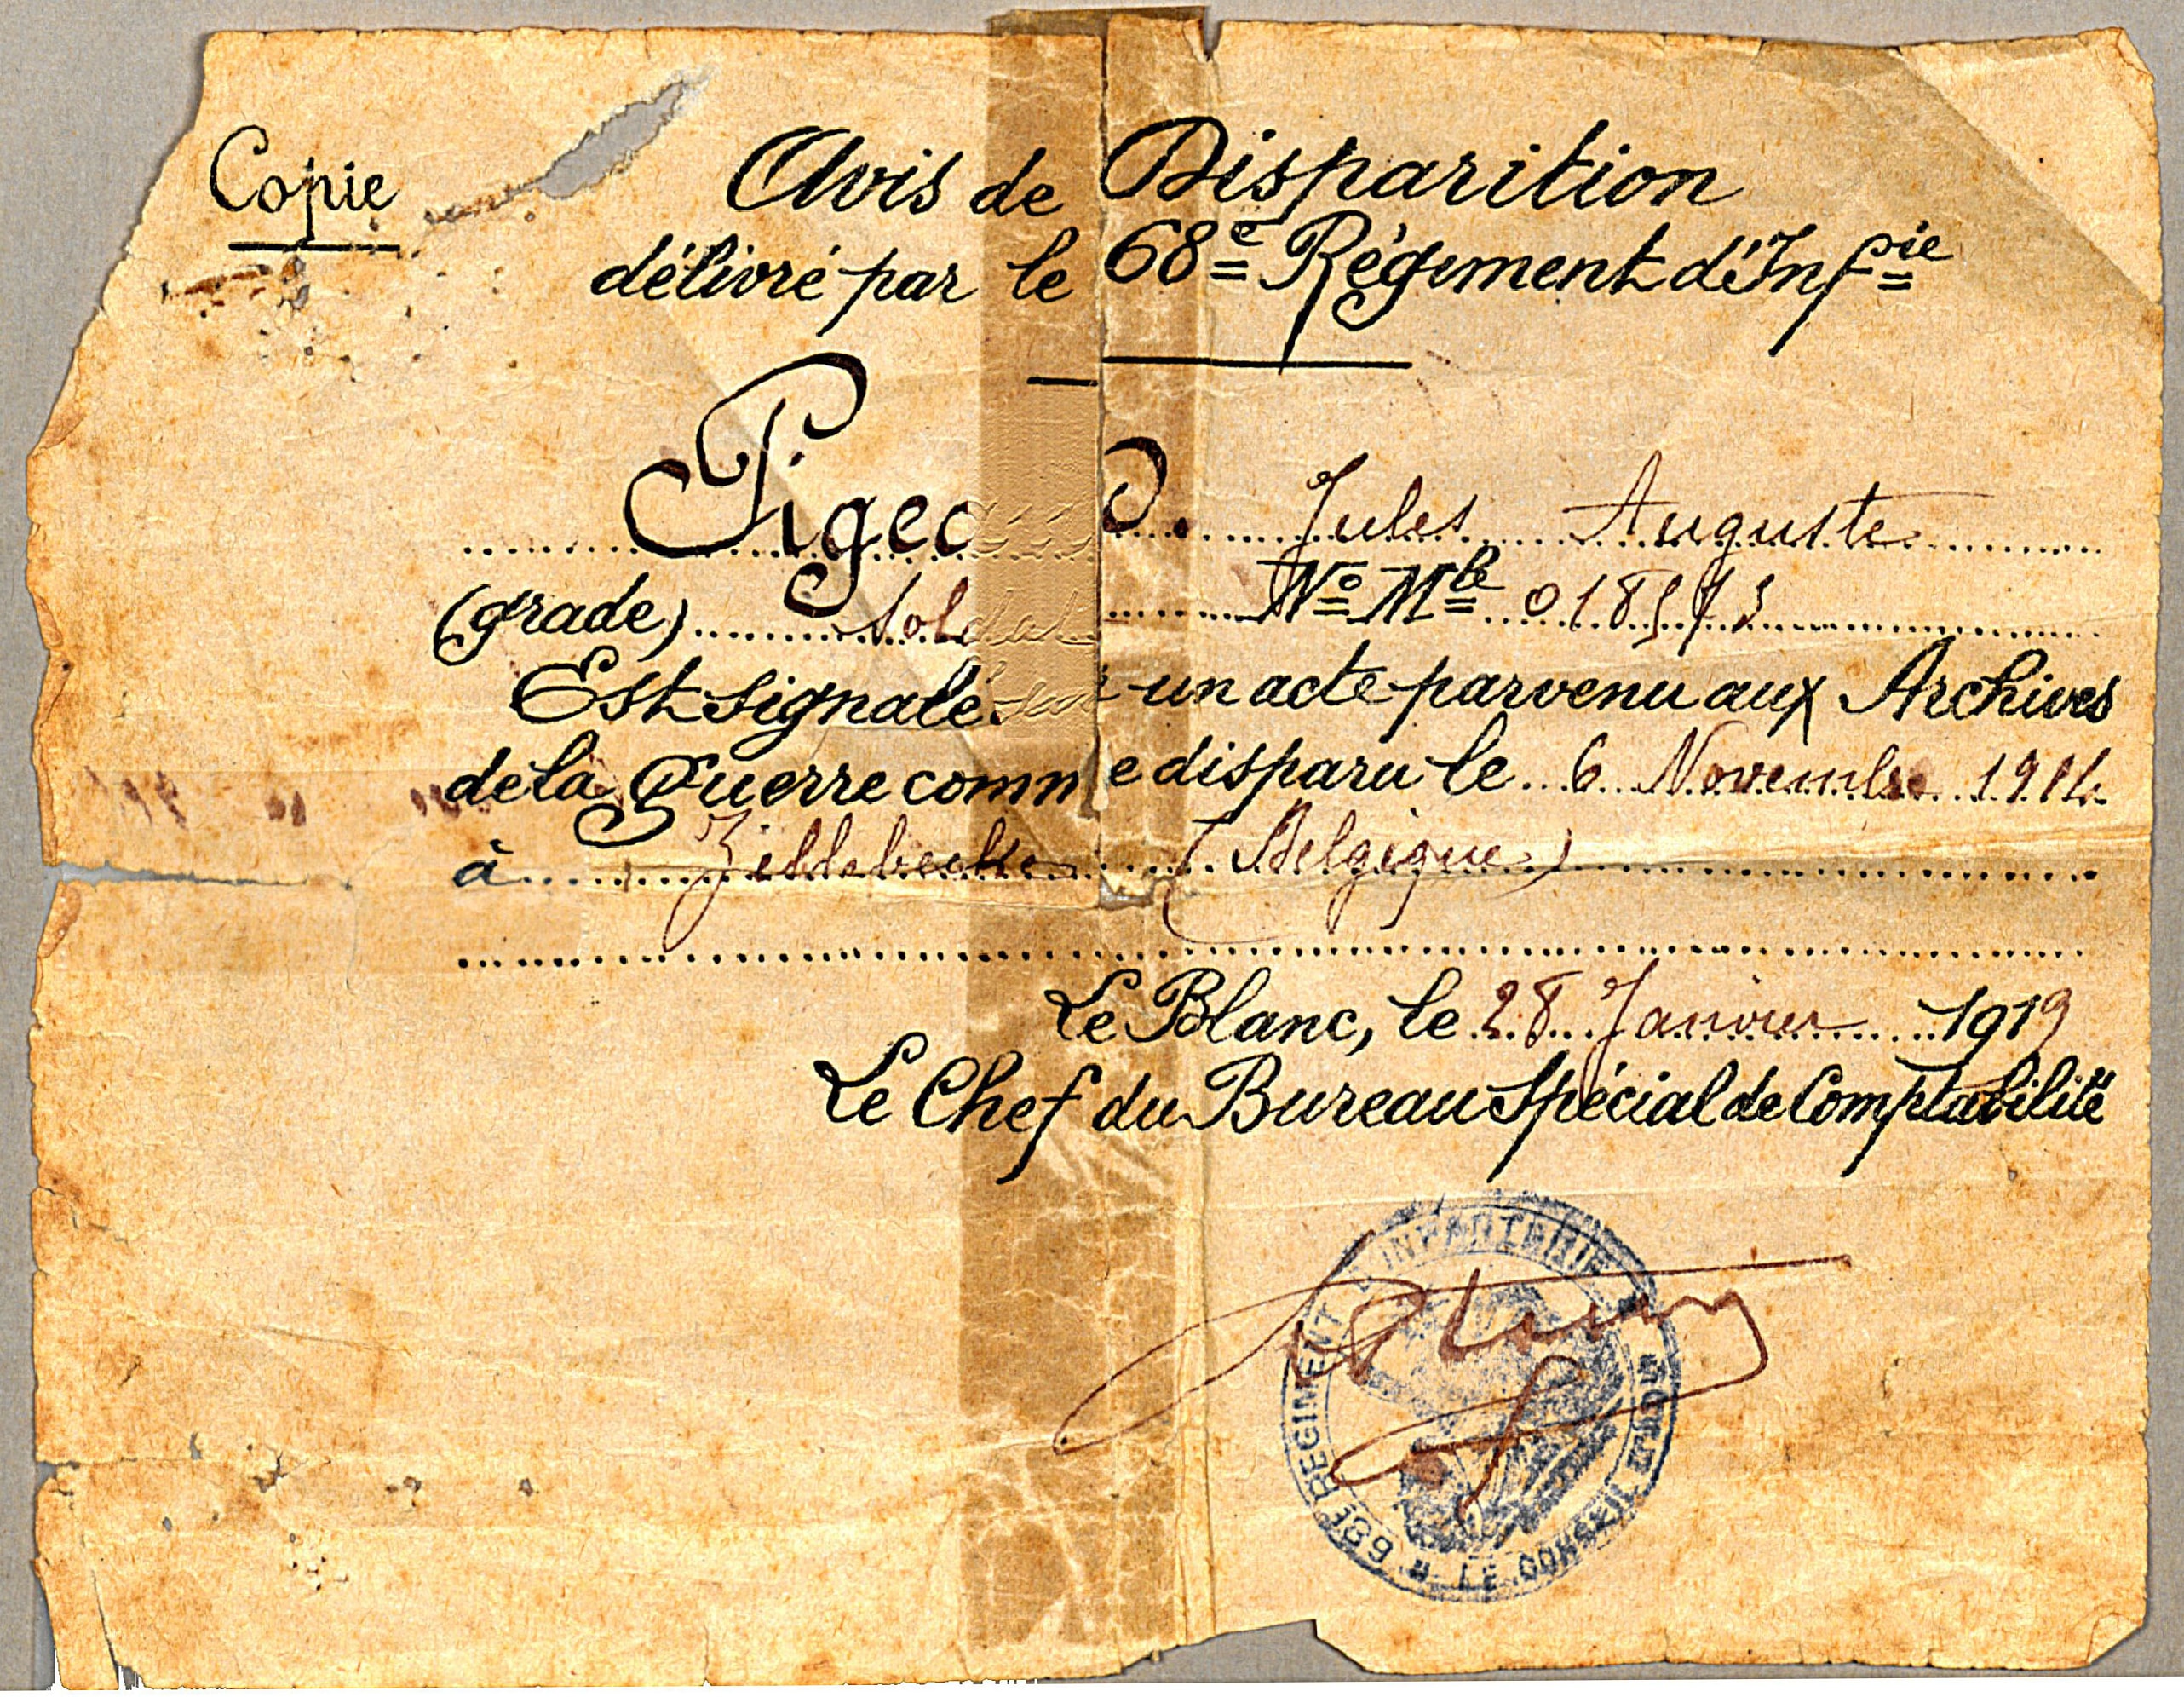 Copie
Avis de Disparition
délivré par le 68e Régiment d'Infie
Jules Auguste
(grade) Soldat No Mle
Est signalé un acte parvenu aux Archives
de la guerre comme disparu le 6 Novembre 1914
à Zillebecke (Belgique)
Le Blanc, le 28 Janvier 1919
Le Chef du Bureau Spécial de Comptabilité
68E REGIMENT D'INFANTERIE
LE CONSEIL